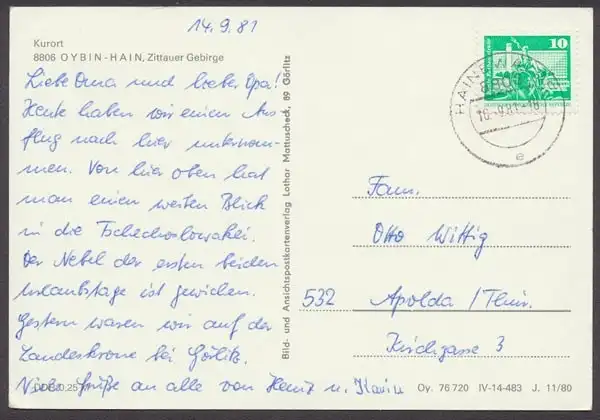 14.9.81
Kurort
8806 OYBIN-HAIN, Zittauer Gebirge
Liebe Oma und lieber Opa!
Heute haben wir einen Aus-
flug nach hier unternom-
men. Von hier oben hat
man einen weiten Blick
in die Tschechoslowakei.
Der Nebel der ersten beiden
Urlaubstage ist gewichen.
Gestern waren wir auf der
Landeskrone bei Görlitz.
Viele Grüße an alle von Heinz u. Karin
Bild- und Ansichtspostkartenverlag Lothar Mattuscheck, 89 Görlitz
10
e
Fam.
Otto Wittig
532 Apolda / Thür.
Kirchgasse 3
Oy. 76 720 IV-14-483 J. 11/80